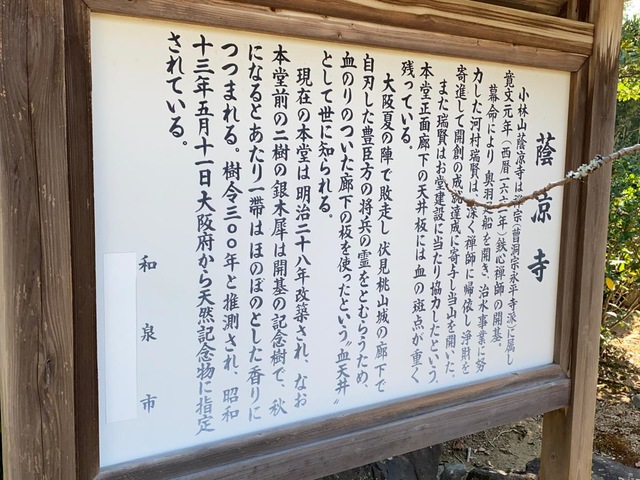 蔭凉寺
小林山蔭凉寺は禅宗(曹洞宗永平寺派)に属し
寛文元年(西暦一六六一年)鉄心禅師の開基。
幕命により、奥羽廻船を開き、治水事業に努
力した河村瑞賢は、深く禅師に帰依し浄財を
寄進して開創の成就達成に寄与し当山を開いた。
また瑞賢はお堂建設に当たり協力したという。
本堂正面廊下の天井板には血の斑点が重く
残っている。
大阪夏の陣で敗走し伏見桃山城の廊下で
自刃した豊臣方の将兵の霊をとむらうため、
血のりのついた廊下の板を使ったという。〝血天井〟
として世に知られる。
現在の本堂は明治二十八年改築され、なお
本堂前の二樹の銀木犀は開基の記念樹で、秋
になるとあたり一帯はほのぼのとした香りに
つつまれる。樹令三〇〇年と推測され、昭和
十三年五月十一日大阪府から天然記念物に指定
されている。
和泉市